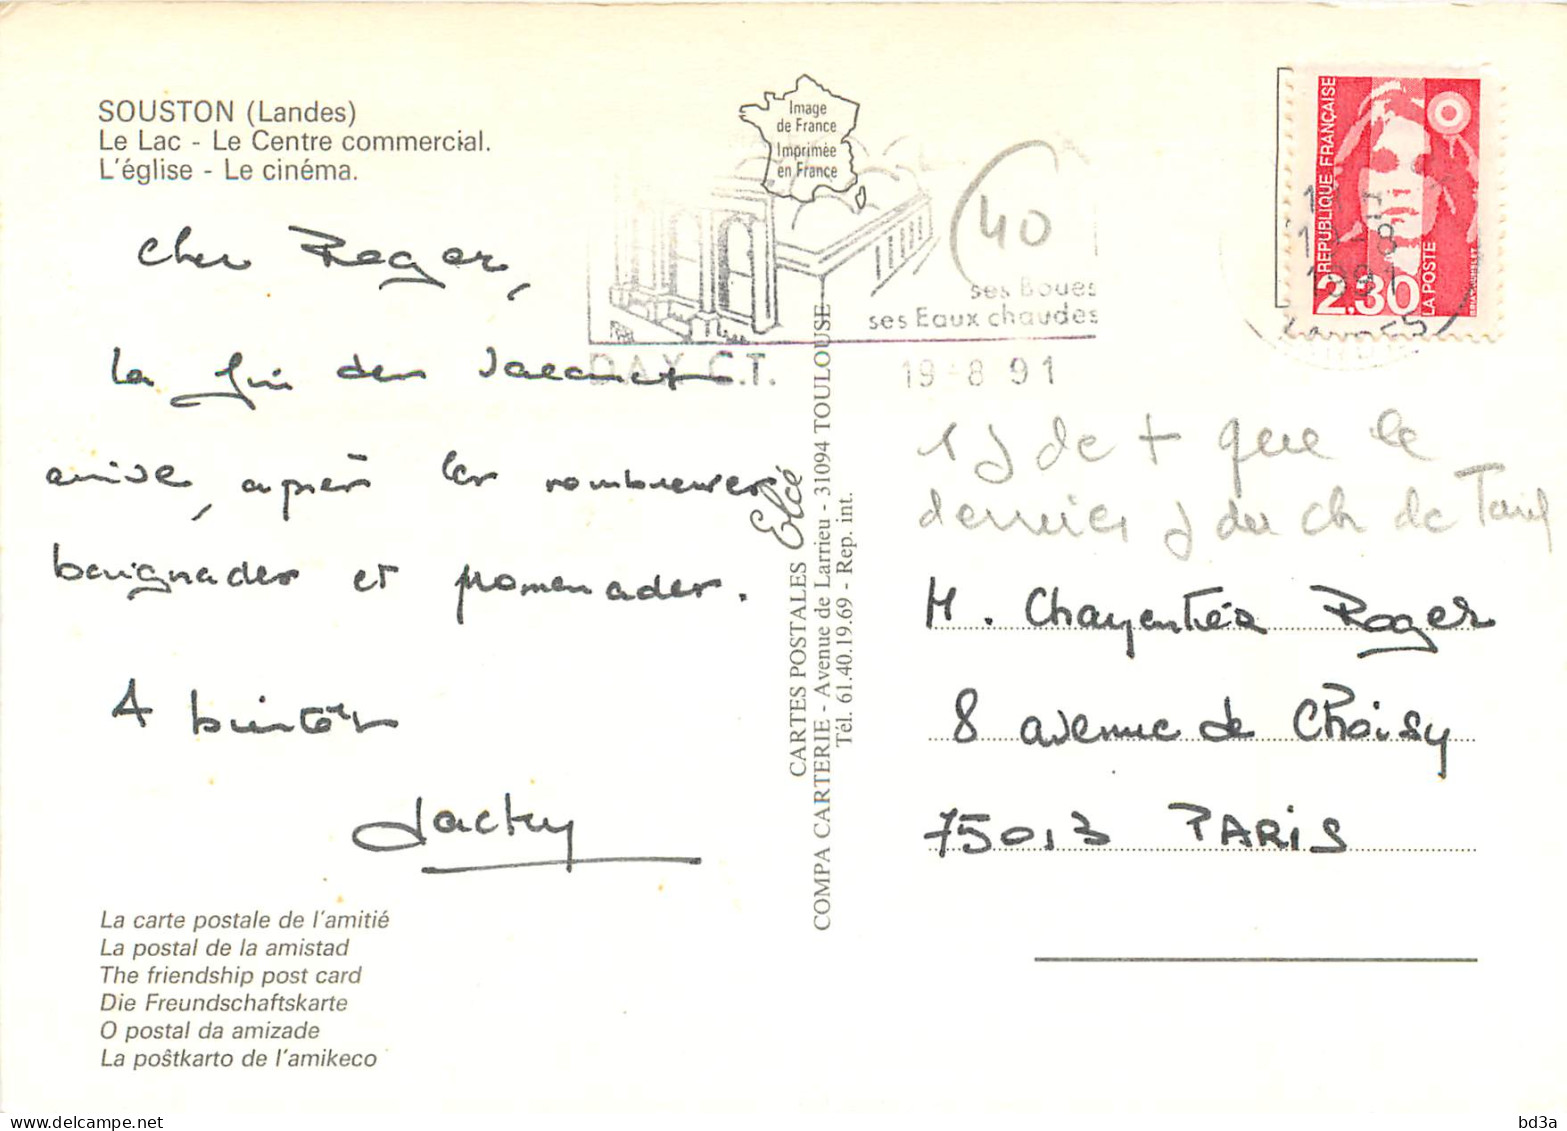 SOUSTON (Landes)
Le Lac - Le Centre commercial.
L'église - Le cinéma.
Cher Roger,
la fin des vacances
arrive, après les nombreuses
baignades et promenades.
A bientôt
Jacky
La carte postale de l'amitié
La postal de la amistad
The friendship post card
Die Freundschaftskarte
O postal da amizade
La poŝtkarto de l'amikeco
Image
de France
Imprimée
en France
40
ses Boues
ses Eaux chaudes
DAX C.T.
19-8 91
CARTES POSTALES Elcé
COMPA CARTERIE - Avenue de Larrieu - 31094 TOULOUSE
Tél. 61.40.19.69 - Rep. int.
RÉPUBLIQUE FRANÇAISE
2.30
LA POSTE
1991
1 J de + que le
dernier J du ch de Tarif
M. Charpentier Roger
8 avenue de CHoisy
75013 PARIS
bd3a